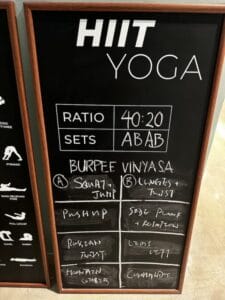 HIIT
YOGA
RATIO 40:20
SETS ABAB
BURPEE VINYASA
A SQUAT + JUMP
B LUNGES + TWIST
PUSHUP
SIDE PLANK + ROTATION
RUSSIAN TWIST
LEGS LIFT
MOUNTAIN CLIMBER